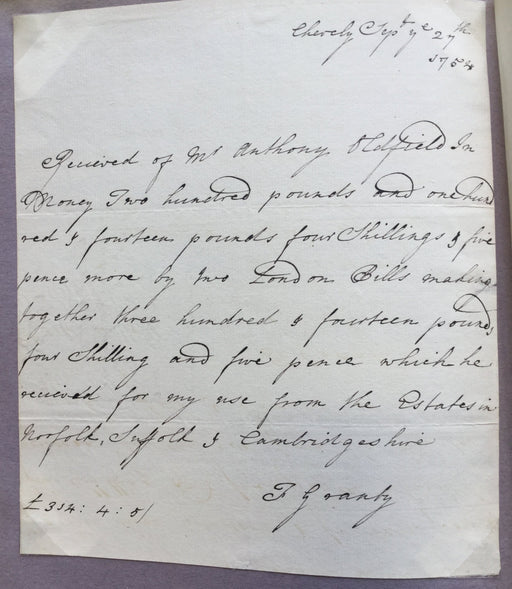 Chevely Sept ye 27th
1754
Recieved of Mr Anthony Oldfield In
Money Two hundred pounds and one hund
red & fourteen pounds four Shillings & five
pence more by two London Bills making
together three hundred & fourteen pounds
four Shilling and five pence which he
recieved for my use from the Estates in
Norfolk, Suffolk & Cambridgeshire
F Granby
£314: 4: 5/